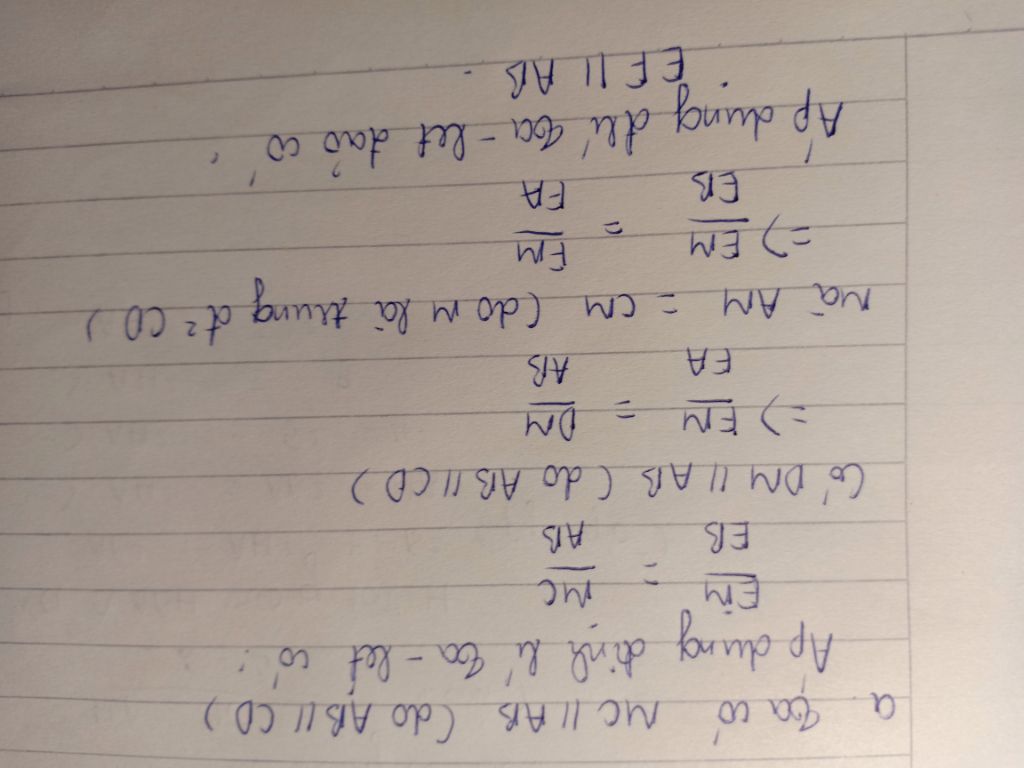 a. Ta có MC // AB (do AB // CD)
Áp dụng định lí Ta-lét có :
EM/EB = MC/AB
Có DM // AB (do AB // CD)
=> FM/FA = DM/AB
mà AM = CM (do M là trung đ² CD)
=> EM/EB = FM/FA
Áp dụng đlí Ta-let đảo có :
EF // AB.